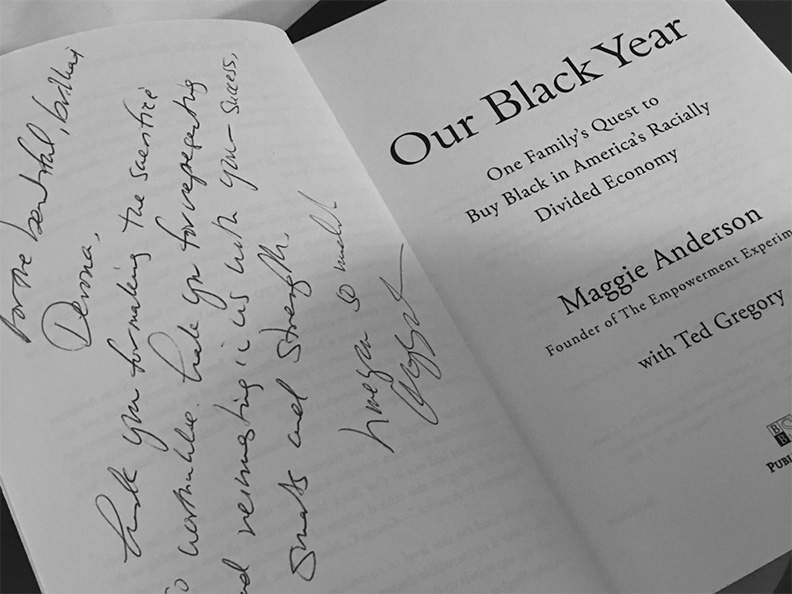 for the beautiful, brilliant
Devona,
Thank you for making the sacrifice
so worthwhile. Thank you for representing
and reinvesting in us with your success,
smarts and strength.
I love you so much
Our Black Year
One Family's Quest to
Buy Black in America's Racially
Divided Economy
Maggie Anderson
Founder of The Empowerment Experim
with Ted Gregory
PUBL